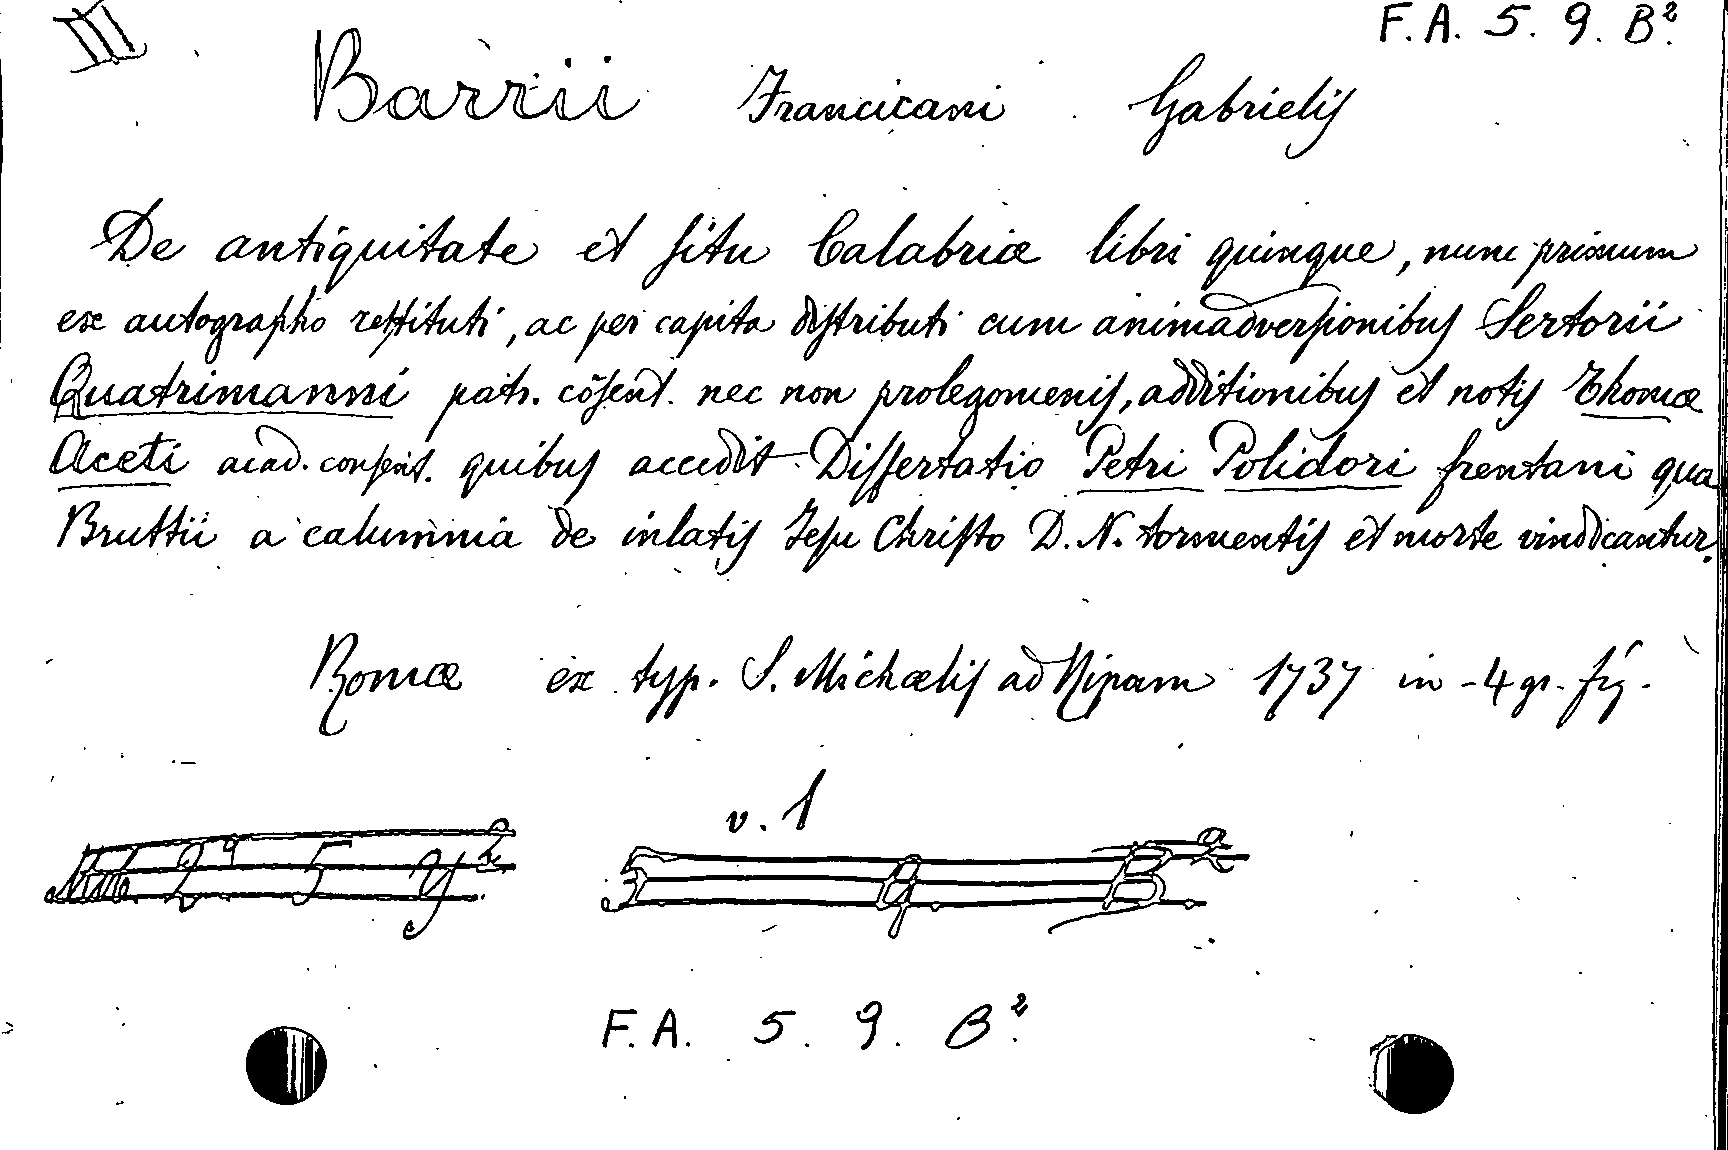 III
F. A. 5. 9. B².
Barrii Francicani Gabrielis
De antiquitate et situ Calabriæ libri quinque, nunc primum
ex autographo restituti, ac per capita distributi cum animadversionibus Sertorii
Quatrimanni patr. cõsent. nec non prolegomenis, additionibus et notis Thomæ
Aceti acad. consent. quibus accedit Dissertatio Petri Polidori frentani qua
Bruttii a calumnia de inlatis Jesu Christo D. N. tormentis et morte vindicantur.
Romæ ex typ. S. Michælis ad Ripam 1737 in-4 gr. fig.
v. 1
5 9. B².
F. A. 5. 9. B².